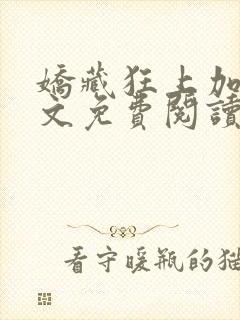 嬌藏狂上加
文免費閱讀
看守暖瓶的猫